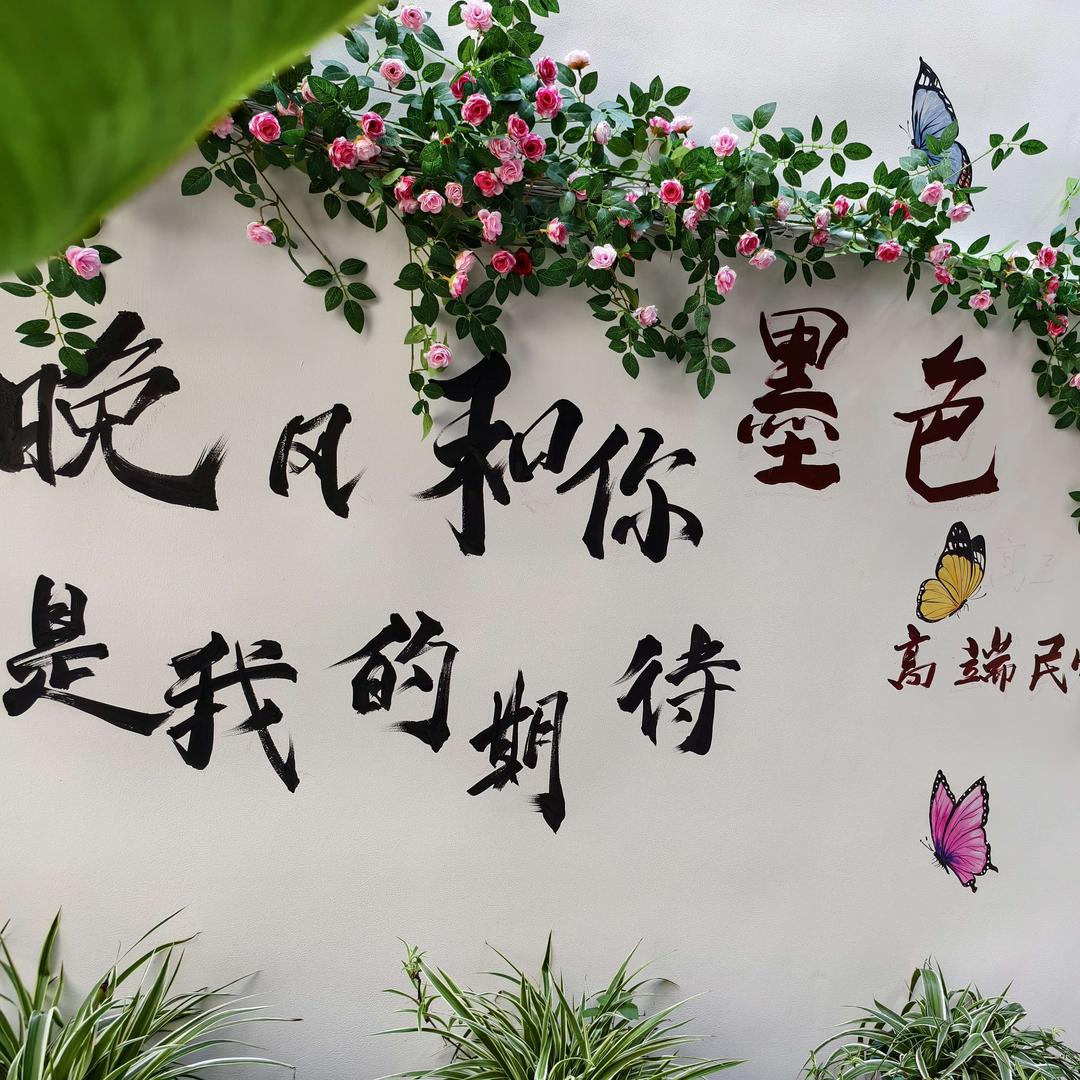 晚风和你
是我的期待
墨色
高端民